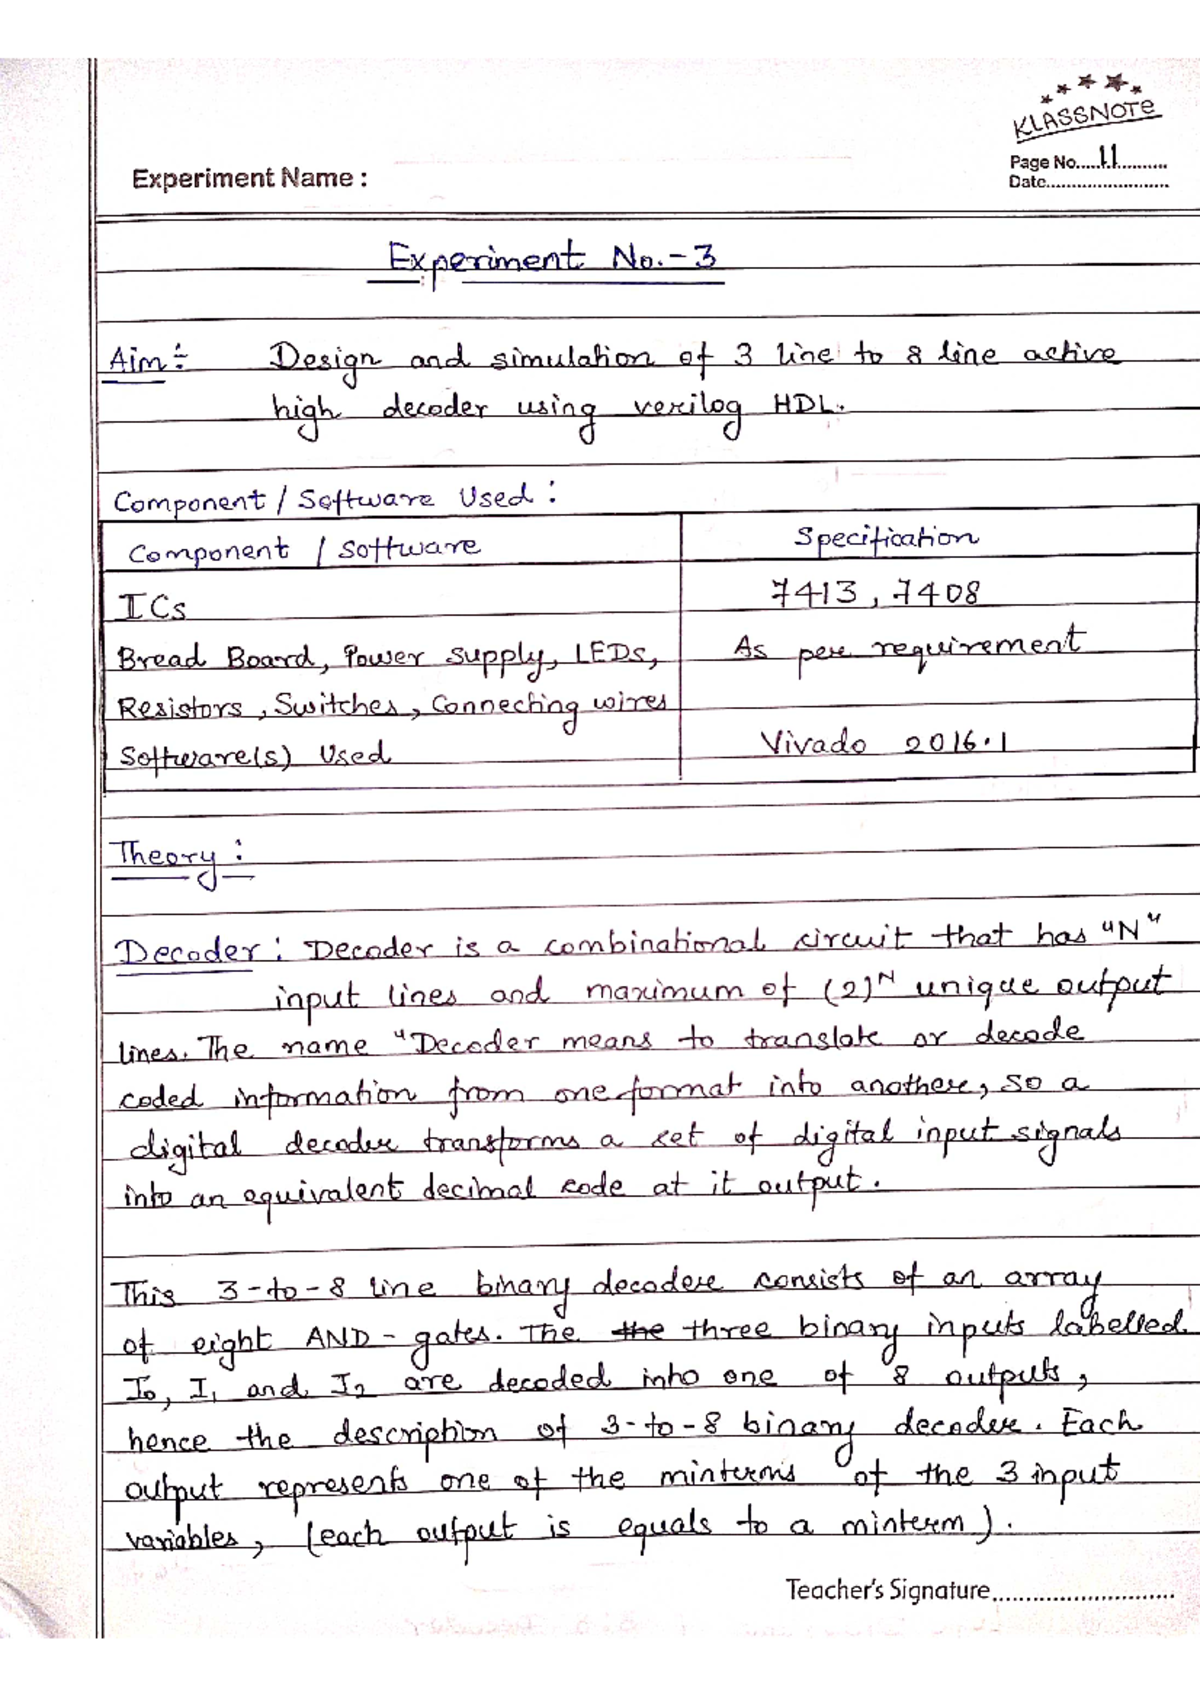 KLASSNOTE
Page No.....11..........
Date........................
Experiment Name :
Experiment No.-3
Aim :- Design and simulation of 3 line to 8 line active
high decoder using verilog HDL.
Component / Software Used :
Component / Software Specification
ICs 7413, 7408
Bread Board, Power supply, LEDs, As per requirement
Resistors, Switches, Connecting wires
Software(s) Used Vivado 2016.1
Theory :
Decoder : Decoder is a combinational circuit that has "N"
input lines and maximum of (2)ᴺ unique output
lines. The name "Decoder means to translate or decode
coded information from one format into another, so a
digital decoder transforms a set of digital input signals
into an equivalent decimal code at it output.
This 3-to-8 line binary decoder consists of an array
of eight AND-gates. The the three binary inputs labelled
I₀, I₁ and I₂ are decoded into one of 8 outputs,
hence the description of 3-to-8 binary decoder. Each
output represents one of the minterms of the 3 input
variables, (each output is equals to a minterm).
Teacher's Signature............................